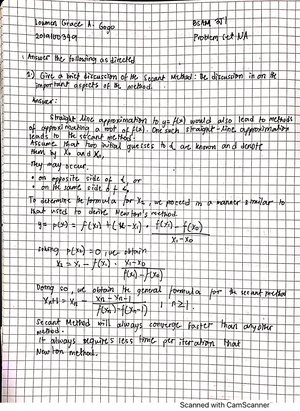 Lournes Grace A. Gogo BSAM III
2019100399 Problem Set NA
1. Answer the following as directed
a) Give a brief discussion of the Secant Method: Be discussion in on the
important aspects of the method.
Answer:
Straight line approximation to y = f(x) would also lead to methods
of approximating a root of f(x). One such straight-line approximation
leads to the secant method.
Assume that two initial guesses to α are known and denote
them by x₀ and x₁,
They may occur.
• on opposite side of α, or
• on the same side of α.
To determine the formula for x₂, we proceed in a manner similar to
that used to derive Newton's method.
y = p(x) = f(x₁) + (x - x₁) · f(x₁) - f(x₀) / x₁ - x₀
solving p(x₂) = 0, we obtain
x₂ = x₁ - f(x₁) · x₁ - x₀ / f(x₁) - f(x₀)
Doing so, we obtain the general formula for the secant method
xn+1 = xn - xn - xn-1 / f(xn) - f(xn-1) , n ≥ 1.
Secant Method will always converge faster than any other
method.
It always requires less time per iteration that
Newton method.
Scanned with CamScanner